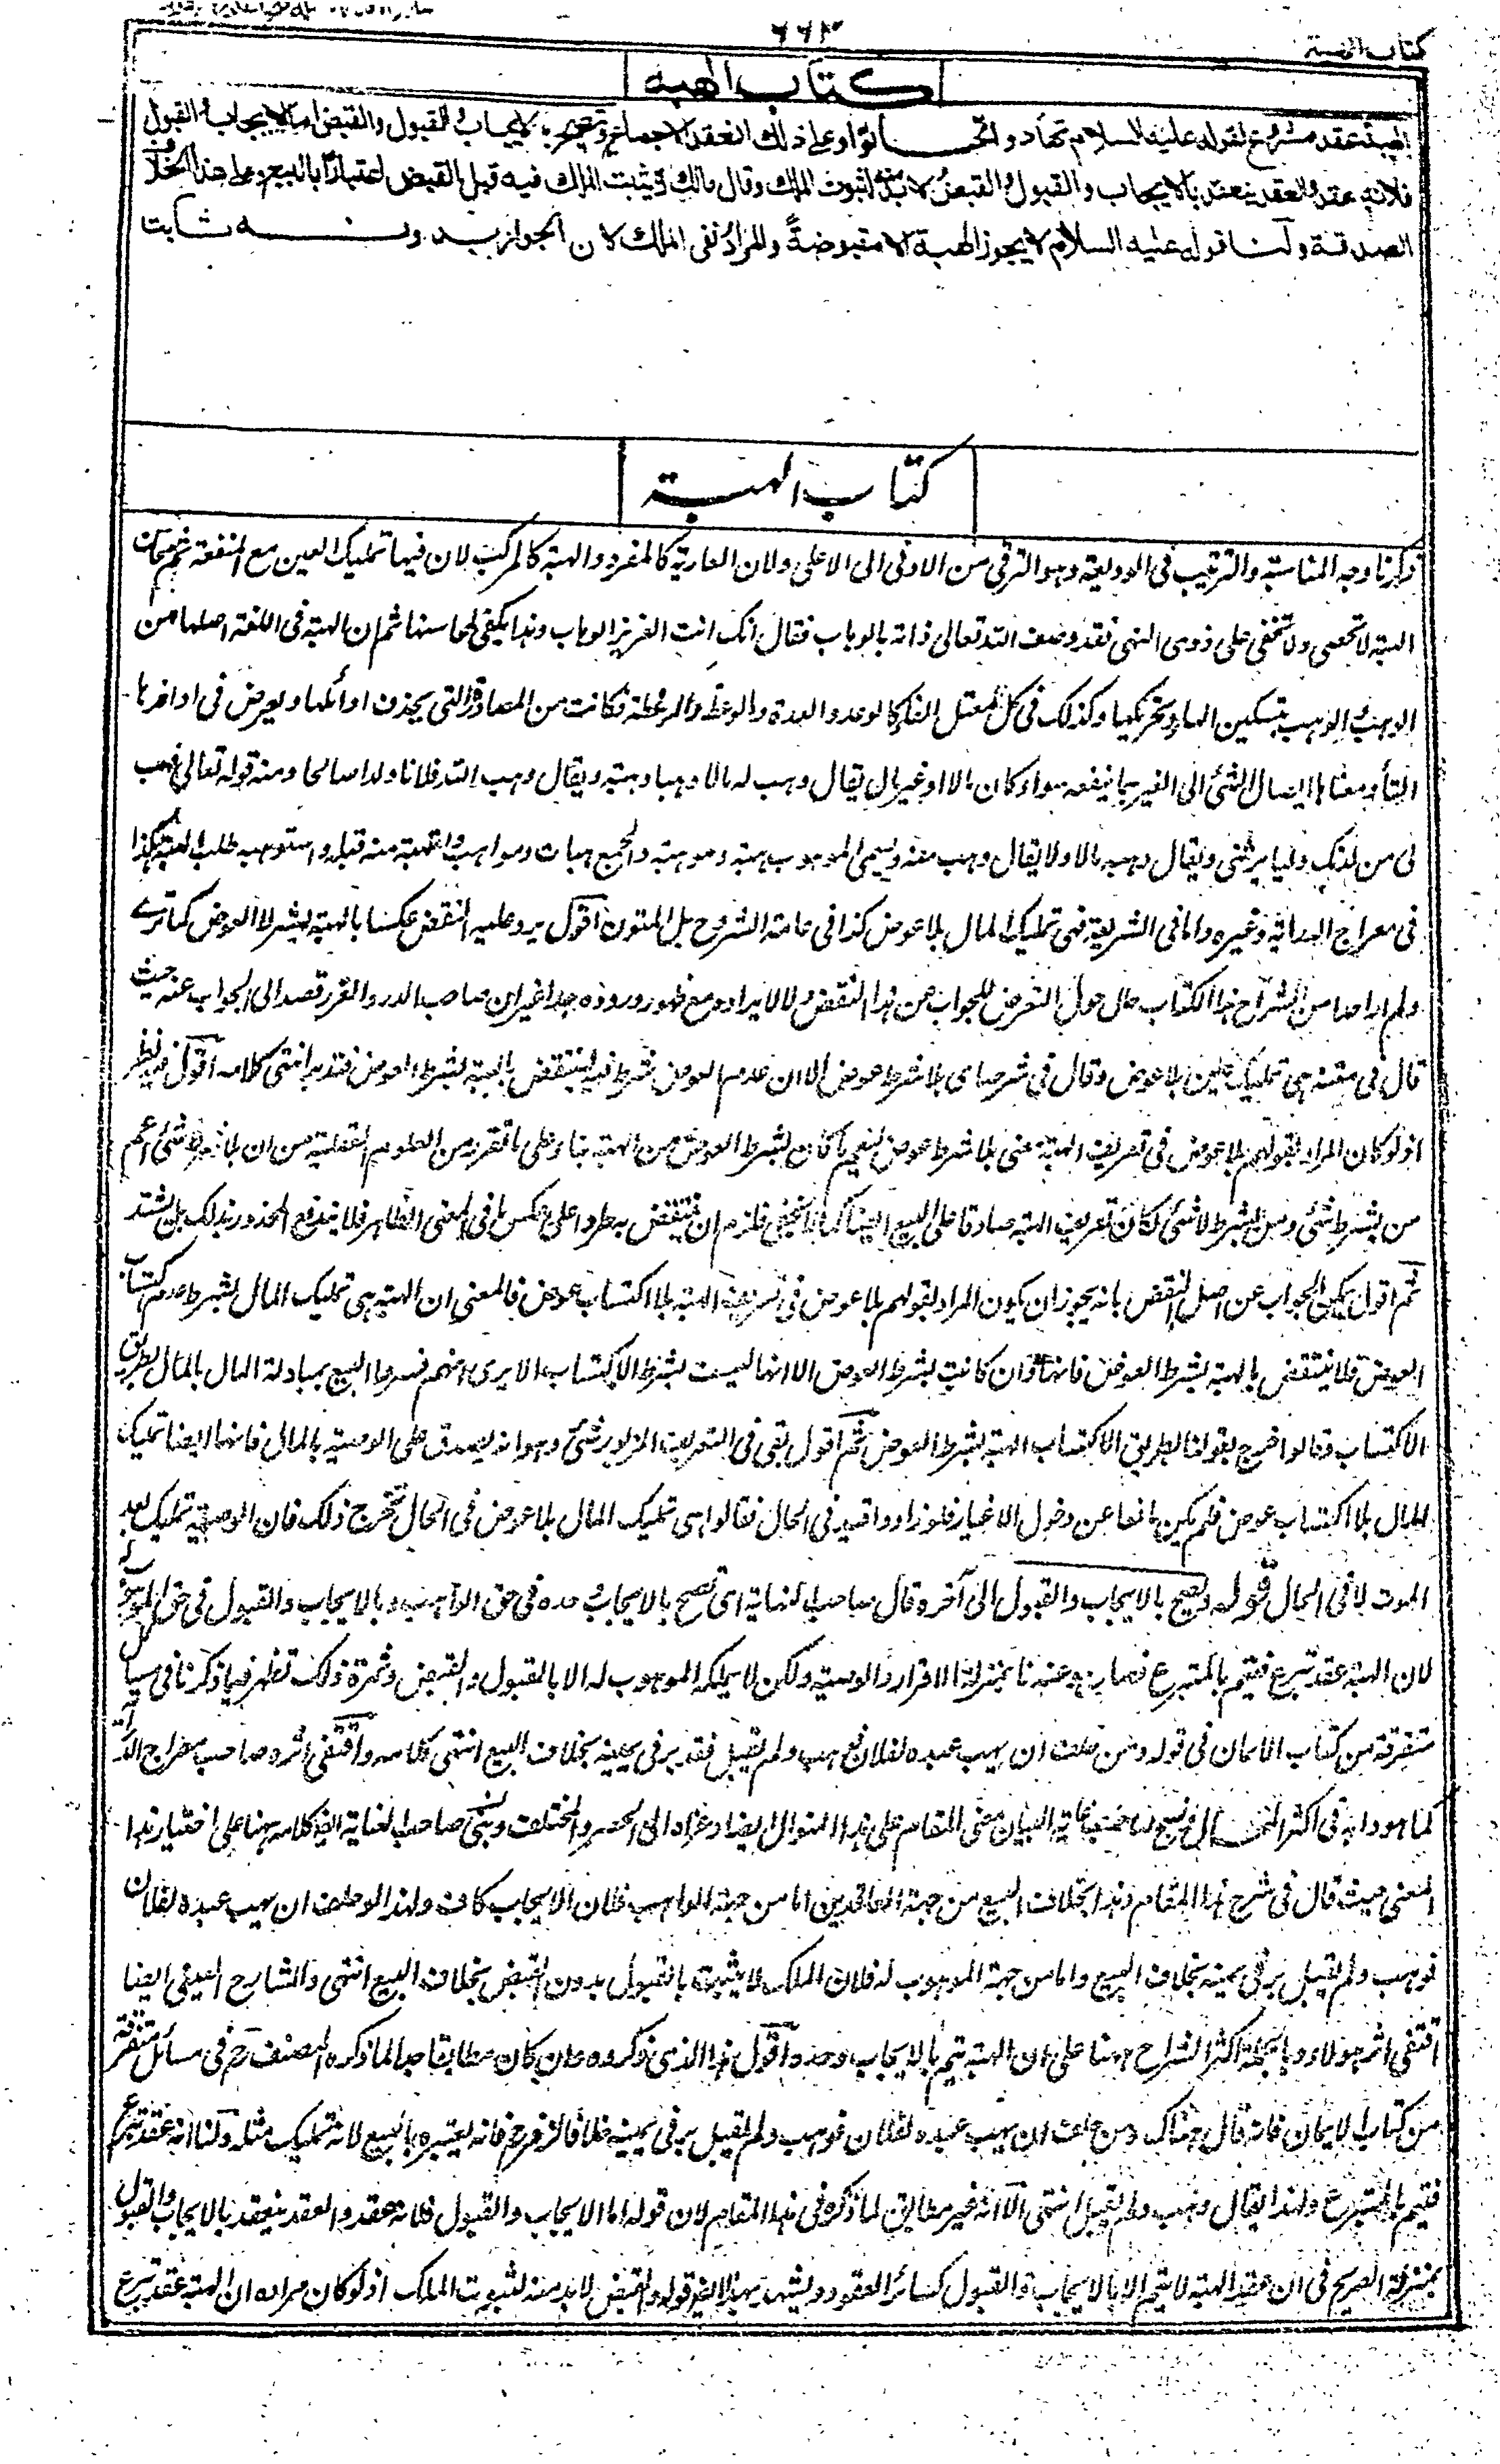 كتاب الهبة
٦٦٣
كتاب الهبه
الهبة عقد مشروع لقوله عليه السلام تهادوا تحابوا وعلى ذلك انعقد الاجماع وتصح بالايجاب والقبول والقبض اما الايجاب والقبول
فلانه عقد والعقد ينعقد بالايجاب والقبول والقبض لا بد منه لثبوت الملك وقال مالك رح يثبت الملك فيه قبل القبض اعتبارا بالبيع وعلى هذا الخلاف
الصدقة ولنا قوله عليه السلام لا يجوز الهبة الا مقبوضة والمراد نفى الملك لان الجواز بدونه ثابت
كتاب الهبة
ذكرنا وجه المناسبة والترتيب فى الوديعة وهو الترقى من الادنى الى الاعلى ولان العارية كالمفرد والهبة كالمركب لان فيها تمليك العين مع المنفعة ثم محاسن
الهبة لا تحصى ولا تخفى على ذوى النهى فقد وصف الله تعالى ذاته بالوهاب فقال انك انت العزيز الوهاب وهذا يكفى لمحاسنها ثم ان الهبة فى اللغة اصلها من
الوهب والوهب بتسكين الهاء وتحريكها وكذلك فى كل معتل الفاء كالوعد والعدة والوعظ والعظة فكانت من المصادر التى يحذف اوائلها ويعوض فى اواخرها
التاء ومعناها ايصال الشئ الى الغير بما ينفعه سواء كان مالا او غير مال يقال وهب له مالا وهبا وهبة ويقال وهب الله فلانا ولدا صالحا ومنه قوله تعالى فهب
لى من لدنك وليا يرثنى ويقال وهبه مالا ولا يقال وهب منه ويسمى الموهوب هبة وموهبة والجمع هبات ومواهب واتهبه منه قبله واستوهبه طلب الهبة كذا
فى معراج الدراية وغيره واما فى الشريعة فهى تمليك المال بلا عوض كذا فى عامة الشروح بل المتون اقول يرد عليه النقض عكسا بالهبة بشرط العوض كما ترى
ولم ار احدا من الشراح هذا الكتاب حال حول التعرض للجواب عن هذا النقض ولا لايراده مع ظهور وروده جدا غير ان صاحب الدرر والغرر قصد الى الجواب عنه حيث
قال فى متنه هى تمليك عين بلا عوض وقال فى شرحه اى بلا شرط عوض لا ان عدم العوض شرط فيه لينتقض بالهبة بشرط العوض فتدبر انتهى كلامه اقول فيه نظر
اذ لو كان المراد بقولهم بلا عوض فى تعريف الهبة معنى بلا شرط عوض ليعم ما كان بشرط العوض من الهبة بناء على ما تقرر من العلوم العقلية من ان بلا شرط شئ اعم
من بشرط شئ ومن بشرط لا شئ لكان تعريف الهبة صادقا على البيع ايضا كما لا يخفى فلزم ان ينتقض به طردا على عكس ما فى المعنى الظاهر فلا يندفع المحذور بذلك بل يشتد
ثم اقول يمكن الجواب عن اصل النقض بانه يجوز ان يكون المراد بقولهم بلا عوض فى تعريف الهبة بلا اكتساب عوض فالمعنى ان الهبة هى تمليك المال بشرط عدم اكتساب
العوض فلا ينتقض بالهبة بشرط العوض فانها وان كانت بشرط العوض الا انها ليست بشرط الاكتساب الا يرى انهم فسروا البيع بمبادلة المال بالمال بطريق
الاكتساب وقالوا خرج بقولنا بطريق الاكتساب الهبة بشرط العوض ثم اقول بقى فى التعريف المزبور شئ وهو انه يصدق على الوصية بالمال فانها ايضا تمليك
المال بلا اكتساب عوض فلم يكن مانعا عن دخول الاغيار فلو زادوا قيد فى الحال فقالوا هى تمليك المال بلا عوض فى الحال لخرج ذلك فان الوصية تمليك بعد
الموت لا فى الحال قوله وتصح بالايجاب والقبول الى آخره قال صاحب النهاية اى تصح بالايجاب وحده فى حق الواهب وبالايجاب والقبول فى حق الموهوب له
لان الهبة عقد تبرع فيتم بالمتبرع فصار هو عندنا بمنزلة الاقرار والوصية ولكن لا يملكه الموهوب له الا بالقبول والقبض وثمرة ذلك تظهر فيما ذكرنا فى مسائل
متفرقة من كتاب الايمان فى قوله ومن حلف ان يهب عبده لفلان فوهب ولم يقبل فقد بر فى يمينه بخلاف البيع انتهى كلامه واقتفى اثره صاحب معراج الدراية
كما هو دابه فى اكثر المحال ونسج صاحب غاية البيان معنى المقام على هذا المنوال ايضا وعزاه الى الحصر والمختلف وبنى صاحب العناية ايضا كلامه ههنا على اختيار هذا
المعنى حيث قال فى شرح هذا المقام وهذا بخلاف البيع من جهة العاقدين اما من جهة الواهب فلان الايجاب كاف ولهذا لو حلف ان يهب عبده لفلان
فوهب ولم يقبل بر فى يمينه بخلاف البيع واما من جهة الموهوب له فلان الملك لا يثبت بالقبول بدون القبض بخلاف البيع انتهى والشارح العينى ايضا
اقتفى اثر هولاء وبالجملة اكثر الشراح ههنا على ان الهبة تتم بالايجاب وحده اقول هذا الذى ذكروه وان كان مطابقا جدا لما ذكره المصنف رح فى مسائل متفرقة
من كتاب الايمان فانه قال هناك ومن حلف ان يهب عبده لفلان فوهب ولم يقبل بر فى يمينه خلافا لزفر رح فانه يعتبره بالبيع لانه تمليك مثله ولنا انه عقد تبرع
فيتم بالمتبرع ولهذا يقال وهب ولم يقبل انتهى الا انه غير مطابق لما ذكره فى هذا المقام لان قوله اما الايجاب والقبول فلانه عقد والعقد ينعقد بالايجاب والقبول
بمنزلة الصريح فى ان عقد الهبة لا يتم الا بالايجاب والقبول كسائر العقود ويشهد بهذا ايضا قوله والقبض لا بد منه لثبوت الملك اذ لو كان مراده ان الهبة عقد تبرع